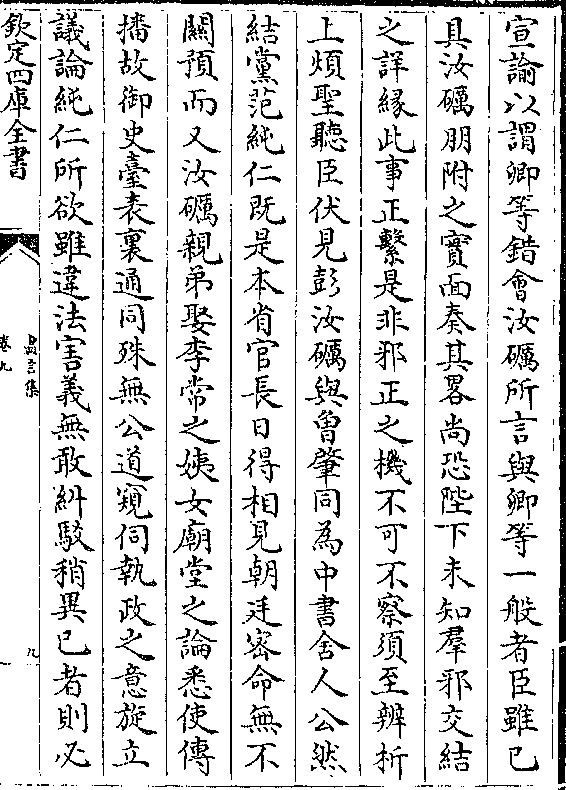 宣諭以謂卿等錯會汝礪所言與卿等一般者臣雖已
具汝礪朋附之實面奏其畧尚恐陛下未知羣邪交結
之詳緣此事正繫是非邪正之機不可不察須至辨析
上煩聖聽臣伏見彭汝礪與曾肇同為中書舍人公然
結黨范純仁既是本省官長日得相見朝廷密命無不
關預而又汝礪親弟娶李常之姨女廟堂之論悉使傳
播故御史臺表裏通同殊無公道窺伺執政之意旋立
議論純仁所欲雖違法害義無敢糾駮稍異已者則必
欽定四庫全書
盡言集
卷九
九